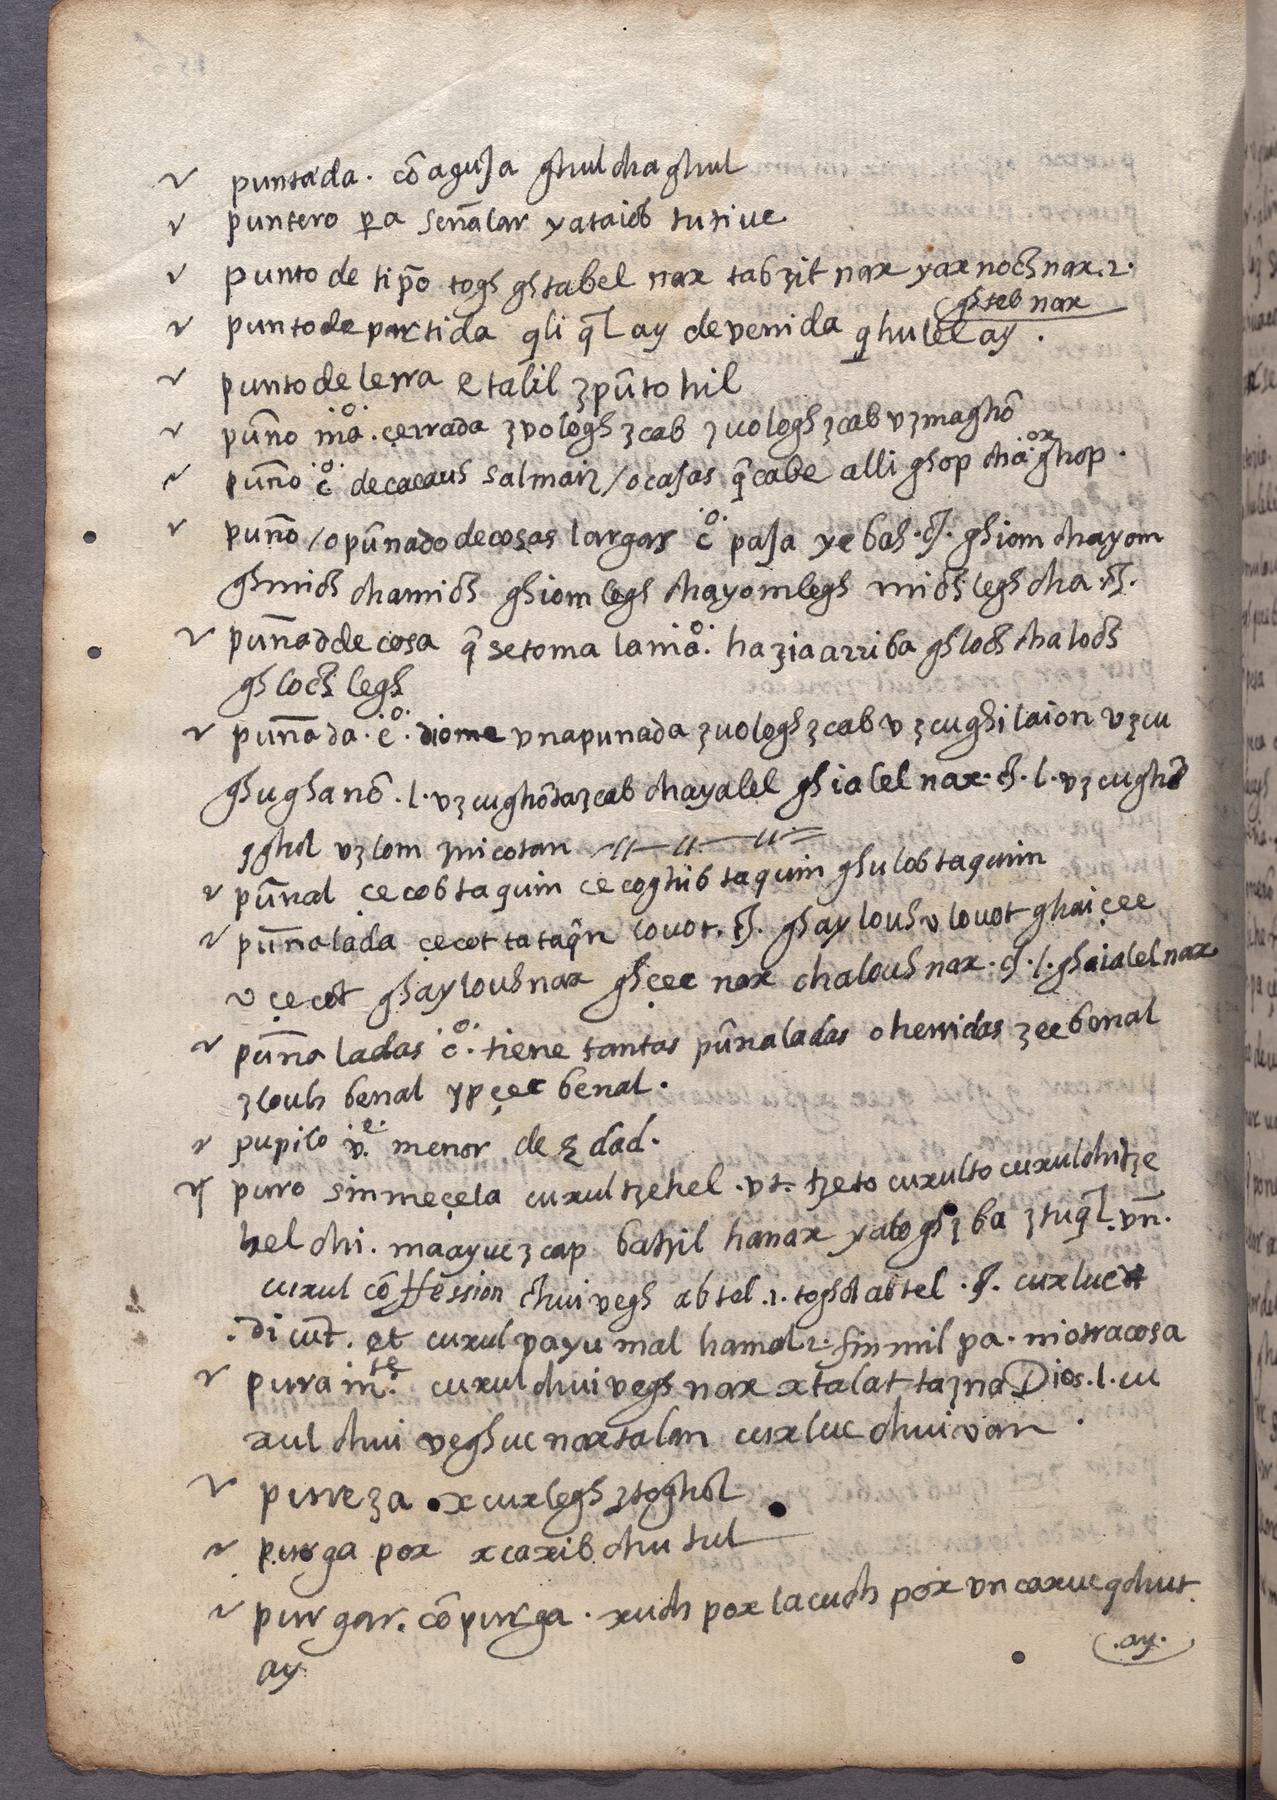 puntada. cō aguja ghul cha ghul
puntero pa señalar xataiob tutive
punto de tip̄o togh ghtabel nax tabzit nax yax nochnax .2.
ghteb nax
punto de partida qli ql ay de venida qhulel ay.
punto de letra etalil zpūto hil
puño mō. cerrada zvologh zcab zuologh zcab vzmaghō
puño co de cacaus sal maiz / o casas q̄ cabe alli ghop cha ox ghop.
puño / o puñado de cosas largas co paja ye bah .ch. ghiom chayom
ghmich chamich ghiom legh chayomlegh mich legh cha .ch.
puñad de cosa q̄ se toma la mō. hazia arriba ghloch chaloch
ghloch legh
puñada. co. diome vna punada zuologh zcab vzcughilaion vzcu
ghughanō .l. vzcughōtazcab chayalel ghialel nax .ch. l. vzcughō
zghol vzlom micotan
puñal çecob taquin çecoghib taquin ghulob taquin
puñalada çecot ta taqn lovot .ch. ghaylouh v lovot ghaiçee
v çecot ghaylouhnax ghçee nax chalouhnax .ch. l. ghaialelnax
puñaladas co. tiene tantas puñaladas o heridas zeebenal
zlouh benal ypçee benal.
pupilo ve. menor de edad.
puro sin meçela cuxul tzehel .vt. tzeto cuxulto cuxulchitze
hel chi. maayuc zcap batzil hanax yalogh zba ztuql .vn.
cuxul cōffession chuivegh abtel .2. toghol abtel .ch. cuxluc
.dicut. et cuxul vayumal hamal 2. sin milpa. ni otra cosa
pura mte. cuxul chuivegh nax xtalat tazna Dios .l. cu
xul chui veghuc nax talan cuxluc chuivan.
pureza xcuxlegh ztoghol
purga pox xcaxib chu tul
purgar. cō purga. xuch pox lacuch pox vn caxuc qchut
ay .ay.